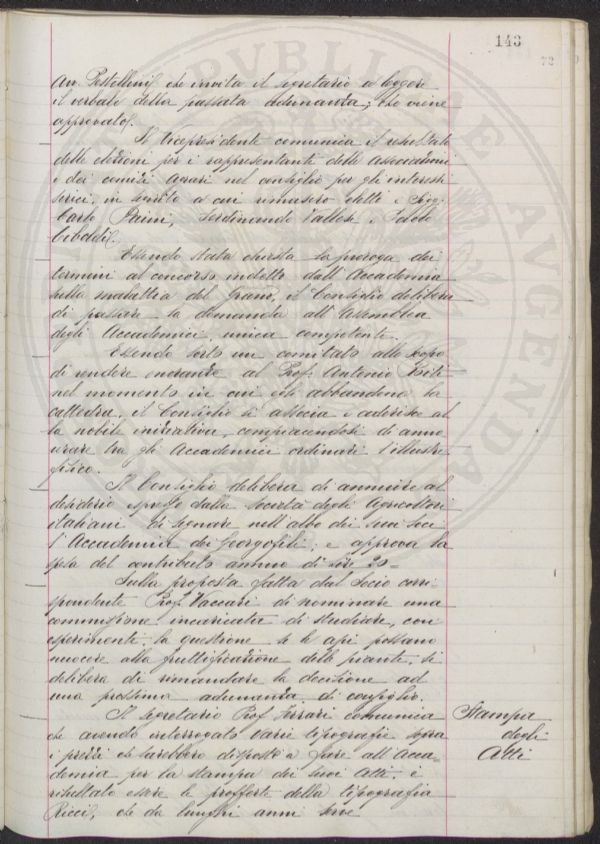 143
72
Av. Pestellini che invita il segretario a leggere
il verbale della passata adunanza; che viene
approvato.
Il Vicepresidente comunica il resultato
delle elezioni per i rappresentante delle Associazioni
e dei comizi Agrari nel consiglio per gli interessi
serici, in seguito a cui rimasero eletti i Sigg.
Carlo Ferdinando
Essendo stata chiesta la proroga dei
termini al concorso indetto dall'Accademia
sulla malattia del grano, il Consiglio delibera
di passare la domanda all'Assemblea
degli Accademici, unica competente.
Essendo sorto un comitato allo scopo
di rendere onoranze al Prof. Antonio Roiti
nel momento in cui egli abbandona la
cattedra, il Consiglio si associa e aderisce al
la nobile iniziativa, compiacendosi di anno
verare tra gli Accademici ordinari l'illustre
fisico.
Il Consiglio delibera di annuire al
desiderio espresso dalla Società degli Agricoltori
italiani di segnare nell'albo dei suoi Soci
l'Accademia dei Georgofili; e approva la
spesa del contributo annuo di lire 20=
Sulla proposta fatta dal Socio corri
spondente Prof. Vaccari di nominare una
commissione incaricata di studiare, con
esperimenti, la questione se le api possano
nuocere alla fruttificazione delle piante, si
delibera di rimandare la decisione ad
una prossima adunanza di consiglio.
Il Segretario Prof. Ferrari comunica
che avendo interrogato varie tipografie sopra
i prezzi che sarebbero disposte a fare all'Acca=
demia per la stampa dei suoi Atti, è
risultato essere le profferte della tipografia
Ricci, che da lunghi anni serve
Stampa
degli
Atti